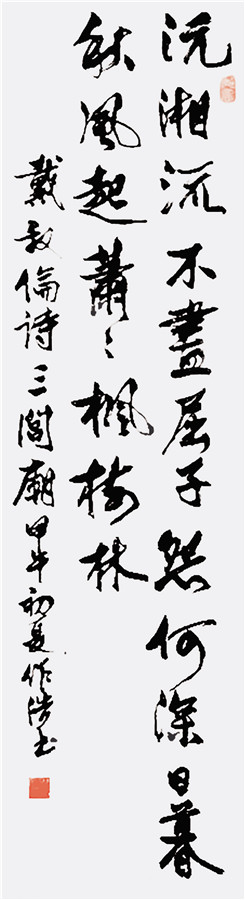 沅湘流不盡屈子怨何深日暮
秋風起蕭々楓樹林
戴叔倫詩三閭廟甲午初夏作浩书